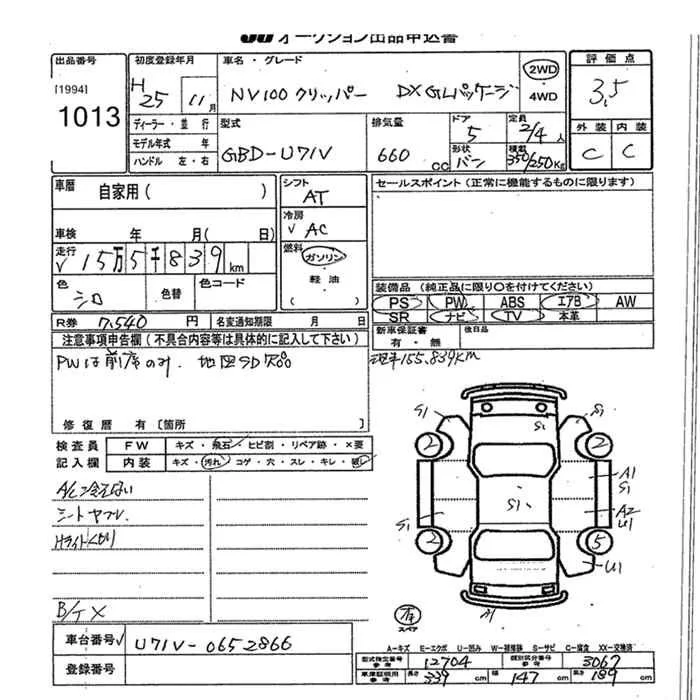 オークション出品申込書
出品番号 [1994] 1013
初度登録年月 H 25 11月
車名・グレード NV100クリッパー DX GLパッケージ
2WD・4WD
評価点 3,5
外装 内装
C C
ディーラー・並行
モデル年式 年
ハンドル 左・右
型式 GBD-U71V
排気量 660 cc
ドア 5
定員 2/4人
形状 バン
積載 350/250Kg
車歴 自家用( )
車検 年 月( 日)
走行 √15万5千839km
色 シロ 色替 色コード
シフト AT
冷房 √AC
燃料 ガソリン・軽油
セールスポイント(正常に機能するものに限ります)
装備品(純正品に限り○を付けてください)
PS PW ABS エアB AW
SR ナビ TV 本革
R券 7,540円 名変通知期限 月 日
新車保証書 有・無 後日品
注意事項申告欄(不具合内容等は具体的に記入して下さい)
PWは前席のみ. 地図SD欠品
修復歴 有[箇所 ]
メーター155,839km
検査員記入欄
FW キズ・飛石・ヒビ割・リペア跡・×要
内装 キズ・汚れ・コゲ・穴・スレ・キレ・破レ
A/C冷えない
シートヤブレ
Hライトくもり
B/T X
S1 S1
2 S2 2
A1
S1
S1 S1
A2
U1
2 5
U1
A1
スペア
車台番号√ U71V-0652866
登録番号
A-キズ E-エクボ U-凹み W-補修跡 S-サビ C-腐食 XX-交換済
型式指定番号参考 12704 類別区分番号参考 3067
車庫証明用参考 長さ 339cm 幅 147cm 高さ 189cm